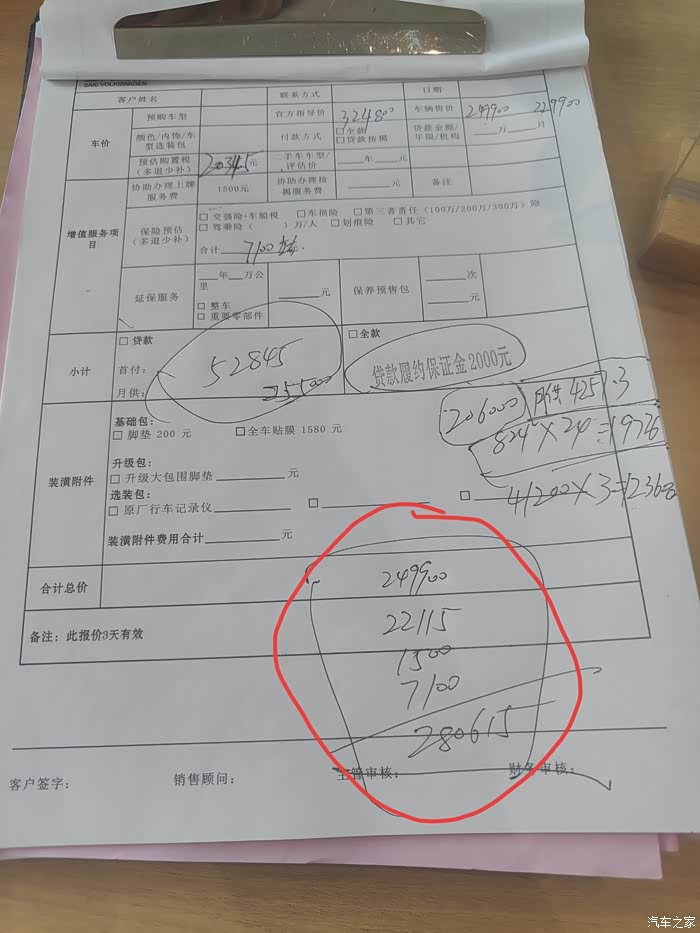 SAIC VOLKSWAGEN
客户姓名 联系方式 日期
车价 预购车型 官方指导价 324800 车辆售价 249900 229900
颜色/内饰/车型选装包 付款方式 □全款 □贷款按揭 贷款金额/年限/机构 万 月
预估购置税(多退少补) 20345元 二手车车型/评估价 车 元
增值服务项目 协助办理上牌服务费 1500元 协助办理按揭服务费 元 备注
保险预估(多退少补) □ 交强险+车船税 □车损险 □第三者责任(100万/200万/300万)险
□ 驾乘险( )万/人 □划痕险 □其它
合计 7100
延保服务 年 万公里 元 保养预售包 次
□ 整车 元
□ 重要零部件
小计 □ 贷款 □全款
首付: 52845 贷款履约保证金2000元
月供: 255000
206000 月供4257.3
824×24=19776
41200×3=123600
装潢附件 基础包:
□ 脚垫 200 元 □全车贴膜 1580 元
升级包:
□ 升级大包围脚垫 元
选装包:
□ 原厂行车记录仪 □ □
装潢附件费用合计 元
合计总价 249900
备注:此报价3天有效 22115
1500
7100
280615
客户签字: 销售顾问: 主管审核: 财务审核:
汽车之家